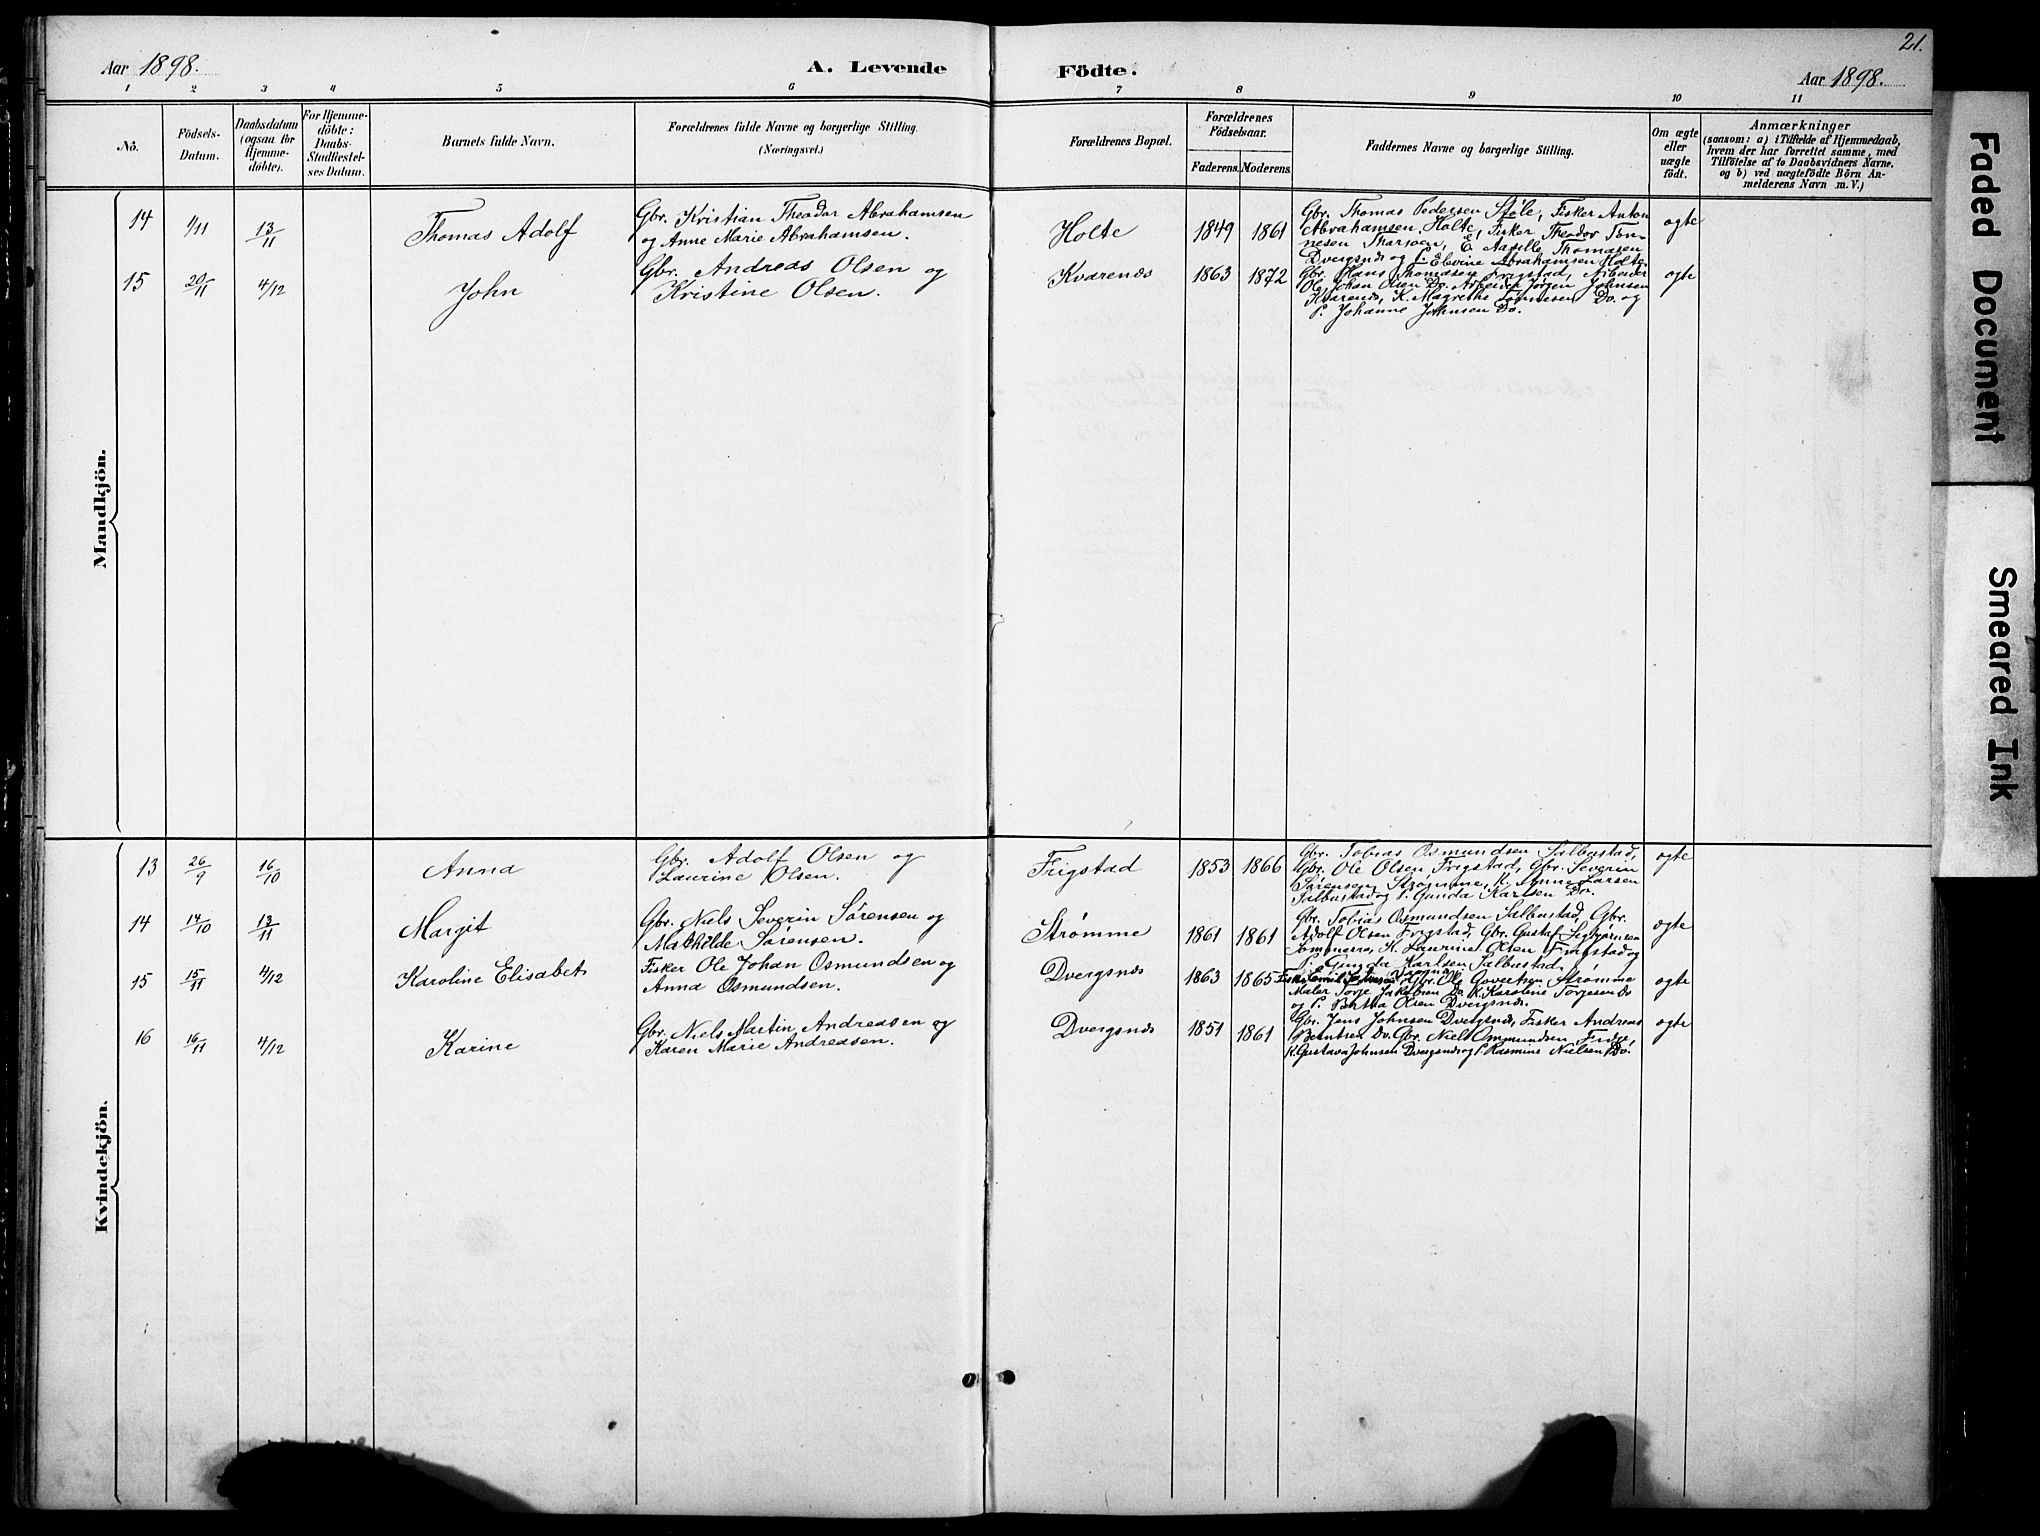 21.
Aar 1898.
A. Levende Födte.
Aar 1898.
1 2 3 4 5 6 7 8 9 10 11
No.
Födsels-
Datum.
Daabsdatum
(ogsaa for
Hjemme-
döbte).
For Hjemme-
döbte:
Daabs-
Stadfæstel-
ses Datum.
Barnets fulde Navn.
Forældrenes fulde Navne og borgerlige Stilling.
(Næringsvei.)
Forældrenes Bopæl.
Forældrenes
Födselsaar.
Faderens. Moderens.
Faddernes Navne og borgerlige Stilling.
Om ægte
eller
uægte
födt.
Anmærkninger
(saasom: a) i Tilfælde af Hjemmedaab,
hvem der har forrettet samme, med
Tilföielse af to Daabsvidners Navne.
og b) ved uægtefödte Börn An-
melderens Navn m. V.)
Mandkjön.
14
1/11
13/11
Thomas Adolf
Gbr. Kristian Theodor Abrahamsen
og Anne Marie Abrahamsen.
Holte
1849
1861
Gbr. Thomas Pedersen Støle, Fisker Anton
Abrahamsen Holte, Fisker Theodor Tøn-
nesen, E. Thomsen
Dvergsnes og Abrahamsen Holte.
ægte
15
20/11
4/12
John
Gbr. Andreas Olsen og
Kristine Olsen.
Kvarenes
1863
1872
Gbr. Hans Thomasen Frigstad, Arbeider
Ole Johan Olsen Do. Arbeider Jørgen Johnsen
Kvarenes, K. Magrethe Tønnesen Do. og
P. Johanne Johnsen Do.
ægte
Kvindekjön.
13
26/9
16/10
Anna
Gbr. Adolf Olsen og
Laurine Olsen.
Frigstad
1853
1866
Gbr. Tobias Osmundsen Salbustad,
Gbr. Ole Olsen Frigstad, Gbr. Severin
Sørensen Strømme, K. Anne Larsen
Salbustad og P. Gunda Karlsen Do.
ægte
14
14/10
13/11
Margit
Gbr. Niels Severin Sørensen og
Mathilde Sørensen.
Strømme
1861
1861
Gbr. Tobias Osmundsen Salbustad, Gbr.
Adolf Olsen Frigstad, Gbr. Gustaf
K. Laurine Olsen Frigstad og
P. Gunda Karlsen Salbustad
ægte
15
15/11
4/12
Karoline Elisabet
Fisker Ole Johan Osmundsen og
Anna Osmundsen.
Dvergsnes
1863
1865
Fisker Emil Gbr. Ole Govertsen Strømme
Maler Torge Jakobsen Do. K. Karoline Torgesen Do
og P. Bertha Olsen Dvergsnes.
ægte
16
16/11
4/12
Karine
Gbr. Niels Martin Andreasen og
Karen Marie Andreasen.
Dvergsnes
1851
1861
Gbr. Jens Johnsen Dvergsnes, Fisker Andreas
Berntsen Do. Gbr. Niels Ommundsen
K. Gustava Johnsen Dvergsnes og P. Rasmine Nielsen Do.
ægte
Faded Document
Smeared Ink